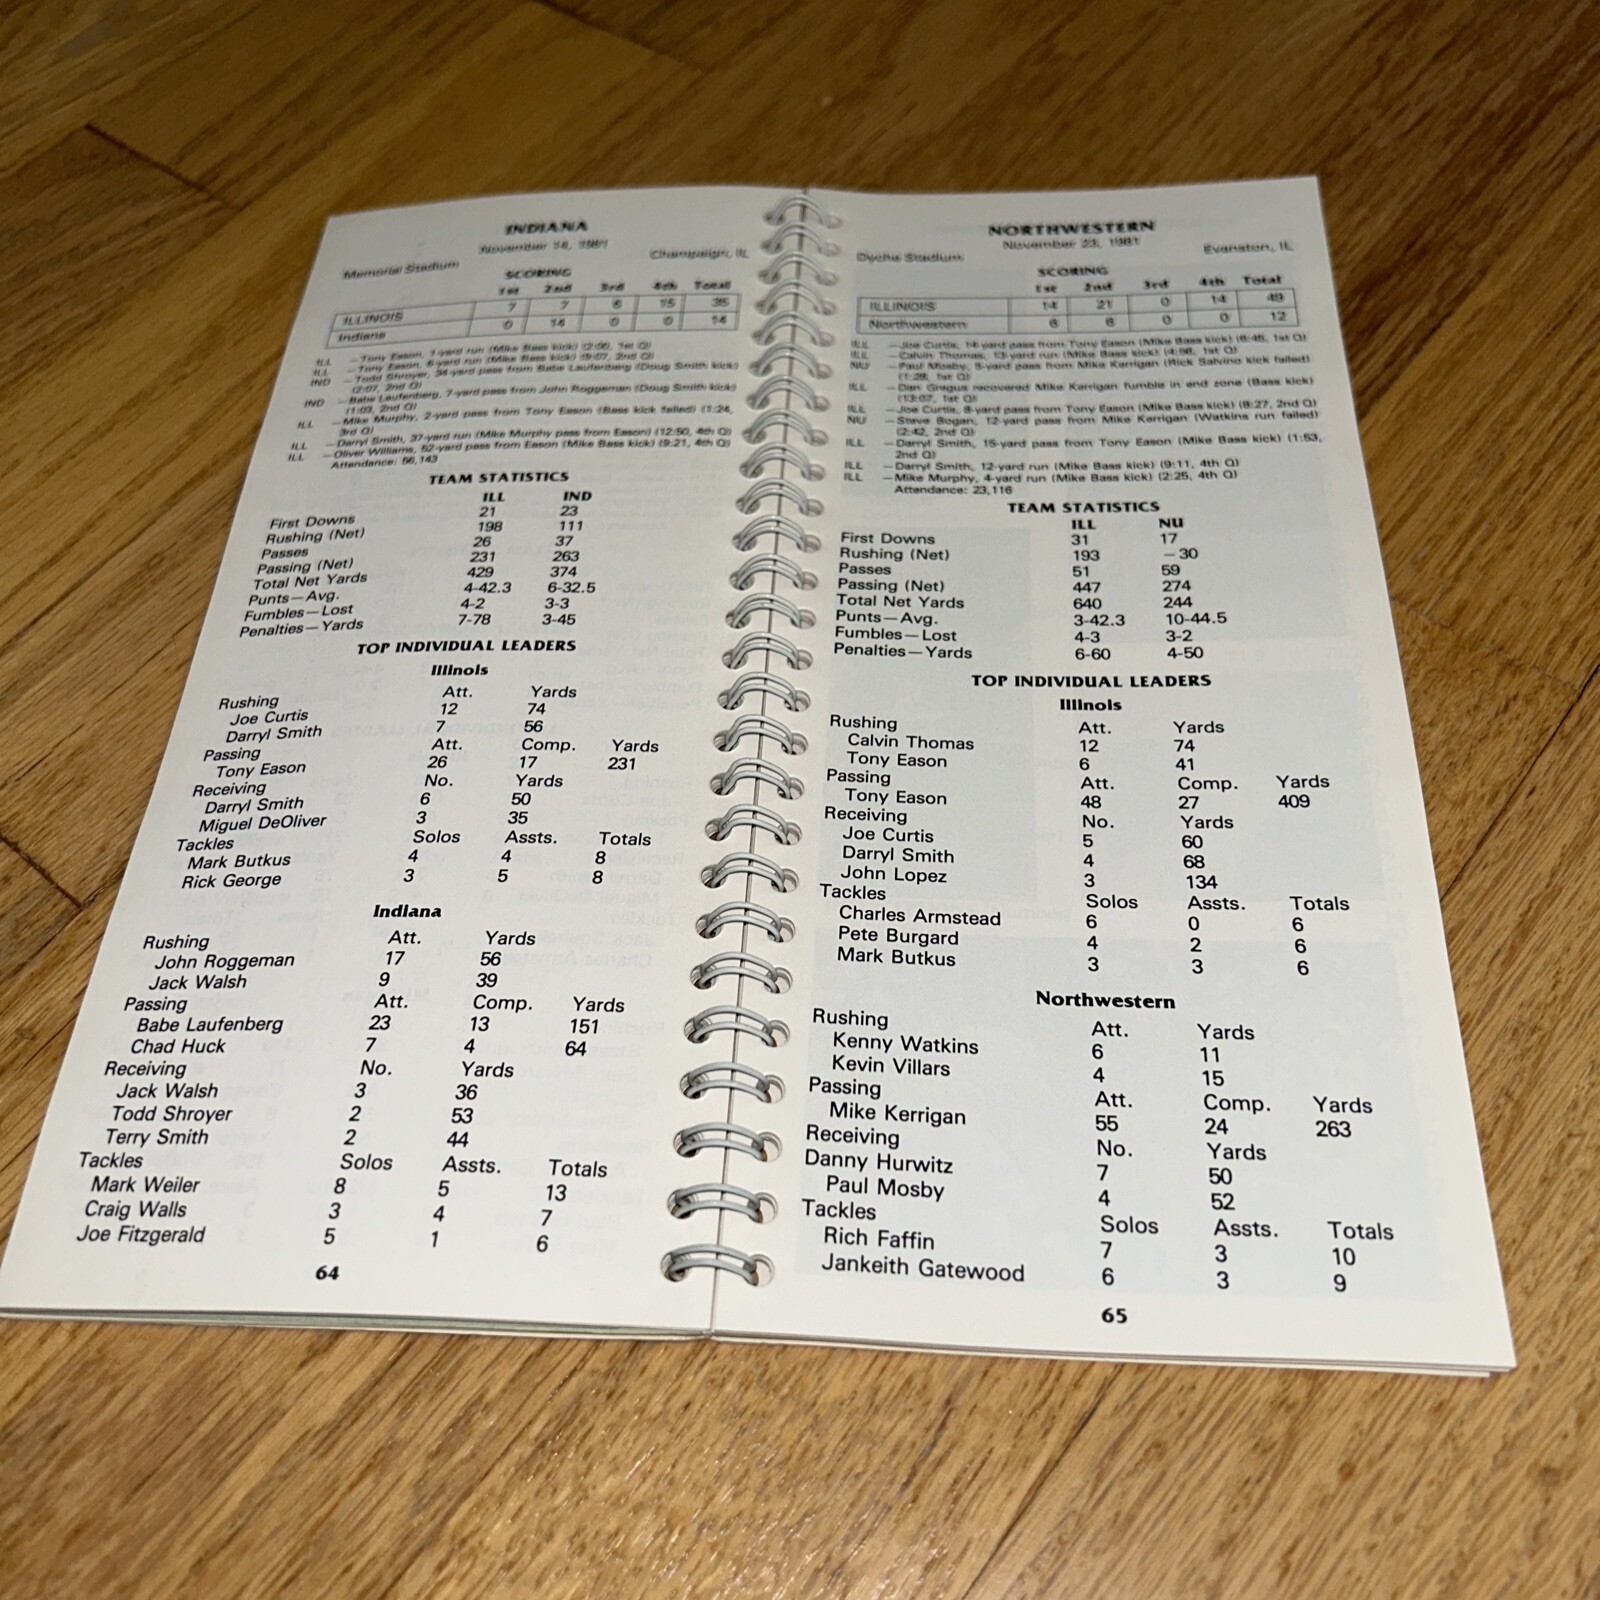 INDIANA
November 14, 1981
Memorial Stadium Champaign, IL
SCORING
1st 2nd 3rd 4th Total
ILLINOIS 7 7 6 15 35
Indiana 0 14 0 0 14
ILL —Tony Eason, 1-yard run (Mike Bass kick) (2:00, 1st Q)
ILL —Tony Eason, 6-yard run (Mike Bass kick) (9:07, 2nd Q)
IND —Todd Shroyer, 34-yard pass from Babe Laufenberg (Doug Smith kick)
(2:07, 2nd Q)
IND —Babe Laufenberg, 7-yard pass from John Roggeman (Doug Smith kick)
(1:03, 2nd Q)
ILL —Mike Murphy, 2-yard pass from Tony Eason (Bass kick failed) (1:24,
3rd Q)
ILL —Darryl Smith, 37-yard run (Mike Murphy pass from Eason) (12:50, 4th Q)
ILL —Oliver Williams, 52-yard pass from Eason (Mike Bass kick) (9:21, 4th Q)
Attendance: 56,143
TEAM STATISTICS
ILL IND
First Downs 21 23
Rushing (Net) 198 111
Passes 26 37
Passing (Net) 231 263
Total Net Yards 429 374
Punts—Avg. 4-42.3 6-32.5
Fumbles—Lost 4-2 3-3
Penalties—Yards 7-78 3-45
TOP INDIVIDUAL LEADERS
Illinois
Rushing Att. Yards
Joe Curtis 12 74
Darryl Smith 7 56
Passing Att. Comp. Yards
Tony Eason 26 17 231
Receiving No. Yards
Darryl Smith 6 50
Miguel DeOliver 3 35
Tackles Solos Assts. Totals
Mark Butkus 4 4 8
Rick George 3 5 8
Indiana
Rushing Att. Yards
John Roggeman 17 56
Jack Walsh 9 39
Passing Att. Comp. Yards
Babe Laufenberg 23 13 151
Chad Huck 7 4 64
Receiving No. Yards
Jack Walsh 3 36
Todd Shroyer 2 53
Terry Smith 2 44
Tackles Solos Assts. Totals
Mark Weiler 8 5 13
Craig Walls 3 4 7
Joe Fitzgerald 5 1 6
64
NORTHWESTERN
November 23, 1981
Dyche Stadium Evanston, IL
SCORING
1st 2nd 3rd 4th Total
ILLINOIS 14 21 0 14 49
Northwestern 6 6 0 0 12
ILL —Joe Curtis, 14-yard pass from Tony Eason (Mike Bass kick) (6:45, 1st Q)
ILL —Calvin Thomas, 13-yard run (Mike Bass kick) (4:56, 1st Q)
NU —Paul Mosby, 5-yard pass from Mike Kerrigan (Rick Salvino kick failed)
(1:28, 1st Q)
ILL —Dan Gregus recovered Mike Kerrigan fumble in end zone (Bass kick)
(13:07, 1st Q)
ILL —Joe Curtis, 8-yard pass from Tony Eason (Mike Bass kick) (8:27, 2nd Q)
NU —Steve Bogan, 12-yard pass from Mike Kerrigan (Watkins run failed)
(2:42, 2nd Q)
ILL —Darryl Smith, 15-yard pass from Tony Eason (Mike Bass kick) (1:53,
2nd Q)
ILL —Darryl Smith, 12-yard run (Mike Bass kick) (9:11, 4th Q)
ILL —Mike Murphy, 4-yard run (Mike Bass kick) (2:25, 4th Q)
Attendance: 23,116
TEAM STATISTICS
ILL NU
First Downs 31 17
Rushing (Net) 193 —30
Passes 51 59
Passing (Net) 447 274
Total Net Yards 640 244
Punts—Avg. 3-42.3 10-44.5
Fumbles—Lost 4-3 3-2
Penalties—Yards 6-60 4-50
TOP INDIVIDUAL LEADERS
Illinois
Rushing Att. Yards
Calvin Thomas 12 74
Tony Eason 6 41
Passing Att. Comp. Yards
Tony Eason 48 27 409
Receiving No. Yards
Joe Curtis 5 60
Darryl Smith 4 68
John Lopez 3 134
Tackles Solos Assts. Totals
Charles Armstead 6 0 6
Pete Burgard 4 2 6
Mark Butkus 3 3 6
Northwestern
Rushing Att. Yards
Kenny Watkins 6 11
Kevin Villars 4 15
Passing Att. Comp. Yards
Mike Kerrigan 55 24 263
Receiving No. Yards
Danny Hurwitz 7 50
Paul Mosby 4 52
Tackles Solos Assts. Totals
Rich Faffin 7 3 10
Jankeith Gatewood 6 3 9
65